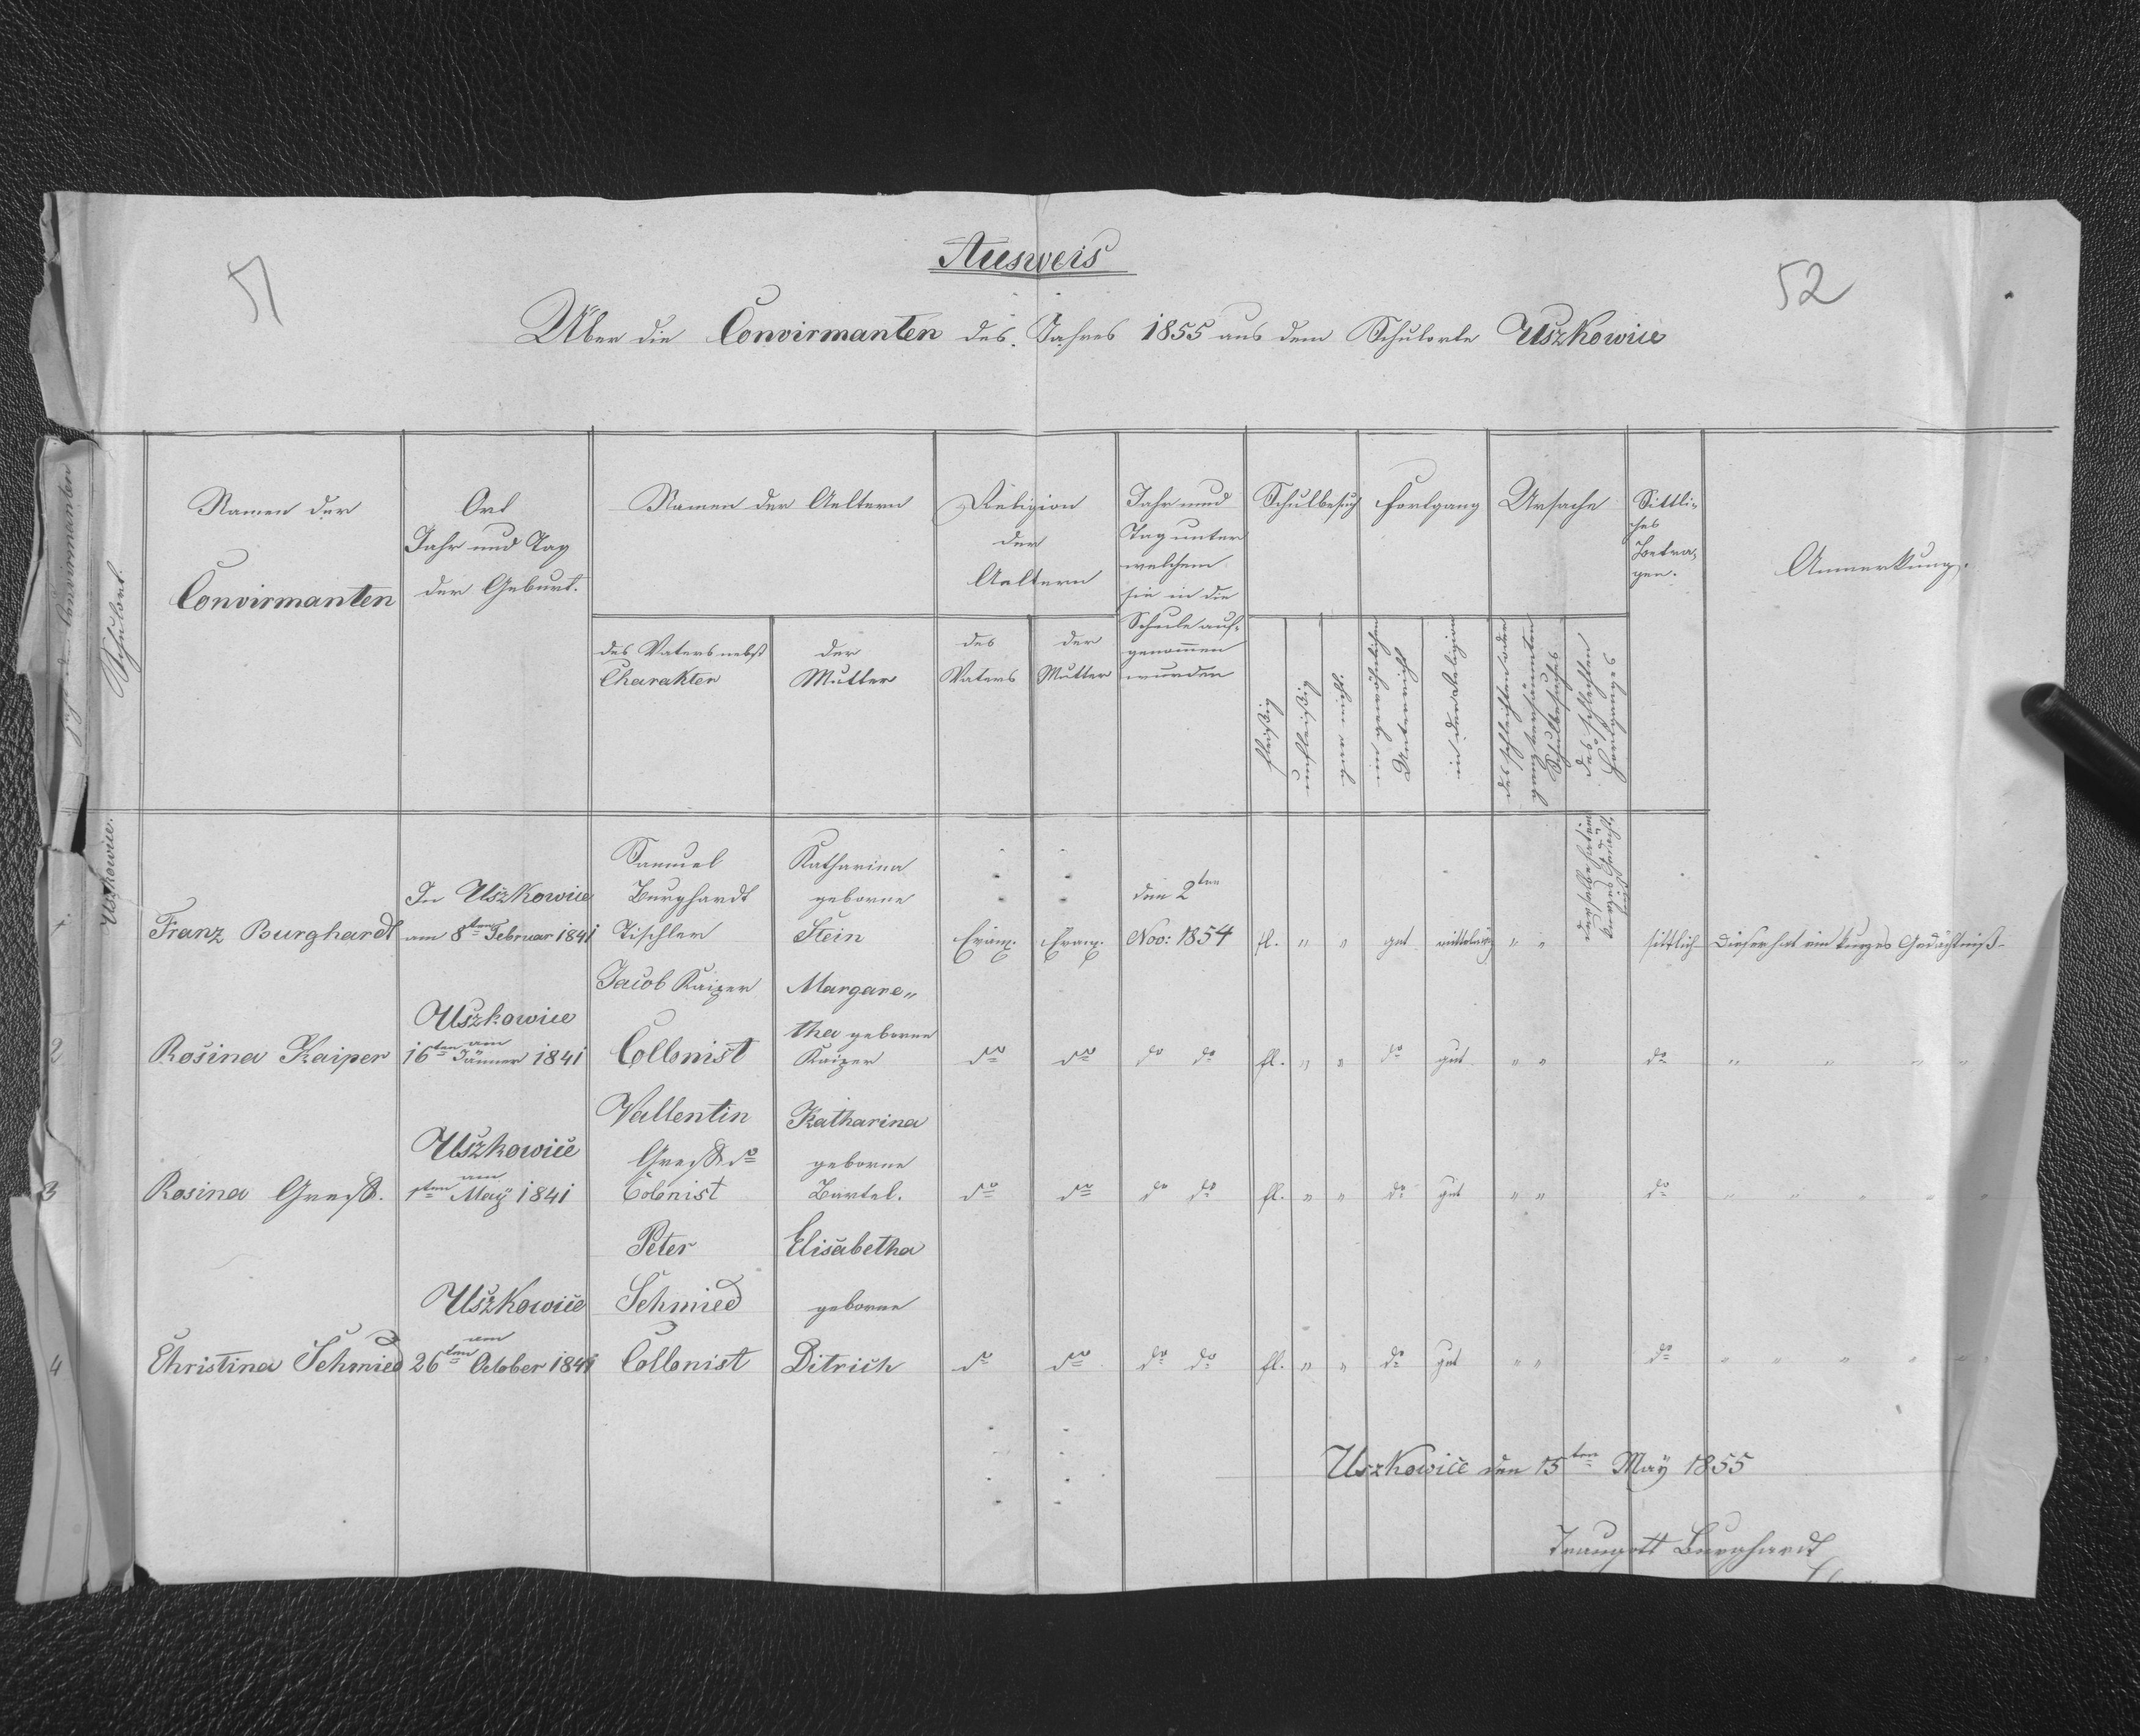 51
52
Ausweis
Über die Convirmanten des Jahres 1855 aus dem Schulorte Uszkowice
Zahl der Convirmanten
Schulort.
Namen der
Convirmanten
Ort
Jahr und Tag
der Geburt.
Namen der Aeltern
des Vaters nebst
Charakter
der
Mutter
Religion
der
Aeltern
des
Vaters
der
Mutter
Jahr und
Tag unter
welchem
sie in die
Schule auf-
genommen
wurden
Schulbesuch
fleißig
unfleißig
gar nicht.
Fortgang
im gewöhnlichen
Unterricht
in der Religion
Ursache
des schlechten oder
ganz versäumten
Schulbesuches
des schlechten
Fortganges
Sittli-
ches
Betra-
gen.
Anmerkung.
Uszkowice.
1
Franz Burghardt
In Uszkowice
am 8ten Februar 1841
Samuel
Burghardt
Tischler
Katharina
geborne
Stein
Evang.
Evang.
den 2ten
Nov: 1854
fl. " "
gut
mittelmäßig
" "
derselbe hat ein
kurzes Gedächt-
niß
sittlich
Dieser hat ein kurzes Gedächtniß
2
Rosina Kaiper
Uszkowice
am
16ten Jänner 1841
Jacob Kaiper
Collonist
Margare„
tha geborne
Kaiper
do
do
do do
fl. " "
do
gut
" "
do
" " " "
3
Rosina Greiß.
Uszkowice
am
1ten Maÿ 1841
Vallentin
Greiß do
Colonist
Katharina
geborne
Bartel.
do
do
do do
fl. " "
do
gut
" "
do
" " " " "
4
Christina Schmied
Uszkowice
am
26ten October 1841
Peter
Schmied
Collonist
Elisabetha
geborne
Ditrich
do
do
do do
fl. " "
do
gut
" "
do
" " " " " "
Uszkowice den 15ten Maÿ 1855
Traugott Burghardt